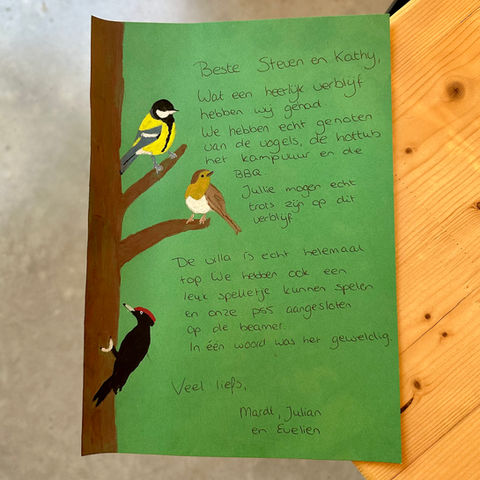 Beste Steven en Kathy,
Wat een heerlijk verblijf
hebben wij gehad
We hebben echt genoten
van de vogels, de hottub
het kampvuur en de
BBQ.
Jullie mogen echt
trots zijn op dit
verblijf
De villa is echt helemaal
top We hebben ook een
leuk spelletje kunnen spelen
en onze ps5 aangesloten
op de beamer.
In één woord was het geweldig.
Veel liefs,
Mardt, Julian
en Evelien